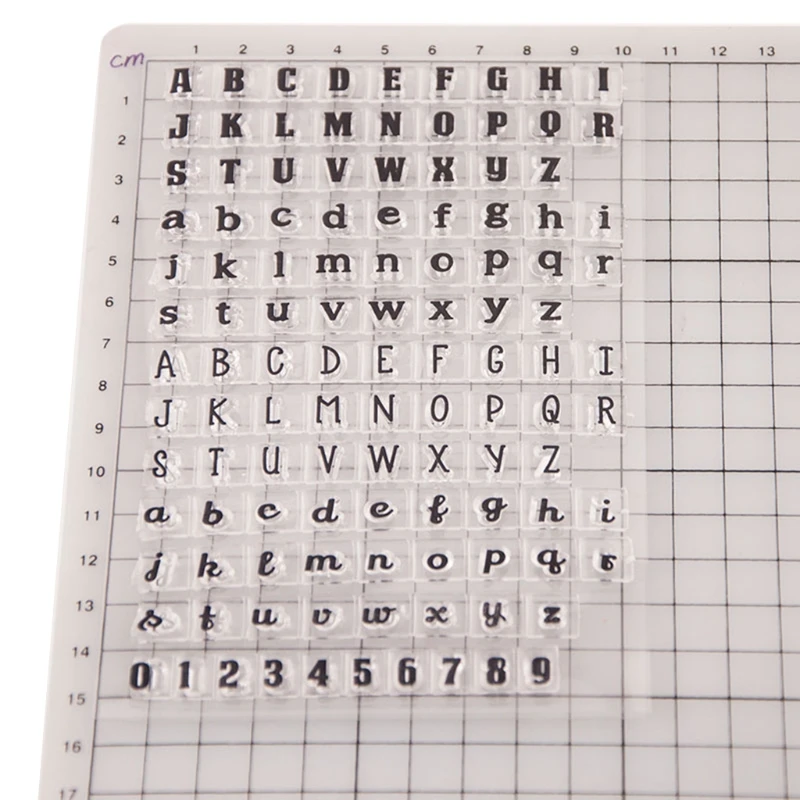 cm 1 2 3 4 5 6 7 8 9 10 11 12 13
A B C D E F G H I
1
J K L M N O P Q R
2
S T U V W X Y Z
3
a b c d e f g h i
4
j k l m n o p q r
5
s t u v w x y z
6
7
A B C D E F G H I
8
J K L M N O P Q R
9
S T U V W X Y Z
10
a b c d e f g h i
11
j k l m n o p q r
12
s t u v w x y z
13
14
0 1 2 3 4 5 6 7 8 9
15
16
17